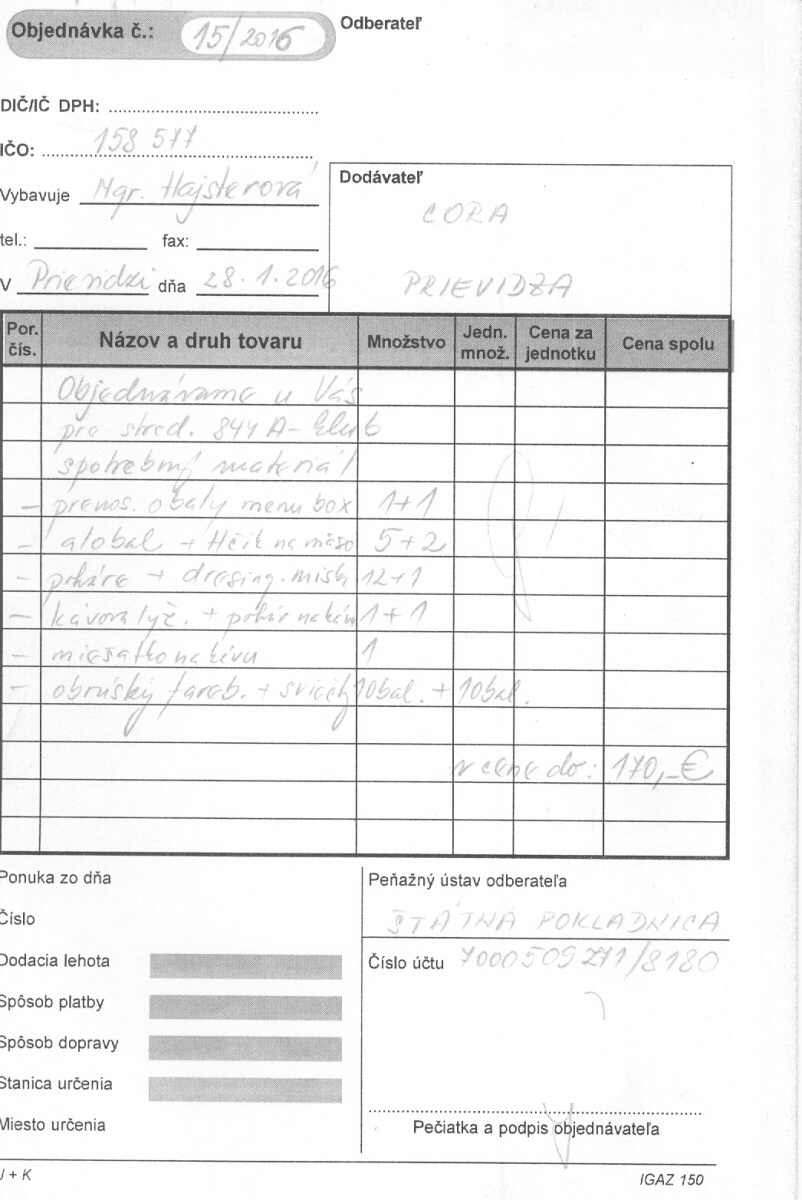 Objednávka č.: 15/2016
Odberateľ
DIČ/IČ DPH:
IČO: 158 577
Vybavuje Mgr. Hajsterová
tel.: fax:
V Prievidzi dňa 28.1.2016
Dodávateľ
CORA
PRIEVIDZA
Por. čís. Názov a druh tovaru Množstvo Jedn. množ. Cena za jednotku Cena spolu
Objednávame u Vás
pre stred. 844 A - klub
spotrebný materiál
- prenos. obaly menu box 1+1
- alobal + na mäso 5+2
- poháre + dresing. misk 12+1
- kávová lyž. + pohár na káv 1+1
- miešatko na kávu 1
- obrúsky fareb. + sviečky 10bal. + 10bal.
v cene do: 170,-€
Ponuka zo dňa
Číslo
Dodacia lehota
Spôsob platby
Spôsob dopravy
Stanica určenia
Miesto určenia
Peňažný ústav odberateľa
ŠTÁTNA POKLADNICA
Číslo účtu 7000509271/8180
Pečiatka a podpis objednávateľa
I + K
IGAZ 150